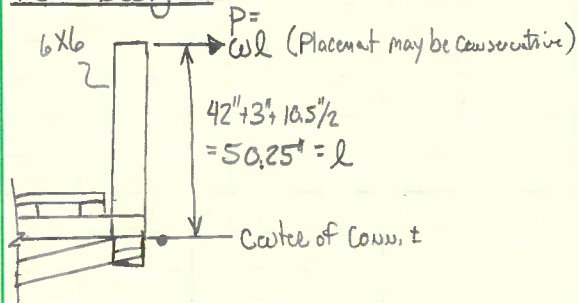 6X6
P=
ωl (Placement may be conservative)
42"+3"+10.5"/2
=50.25" = l
Center of Conn. ±